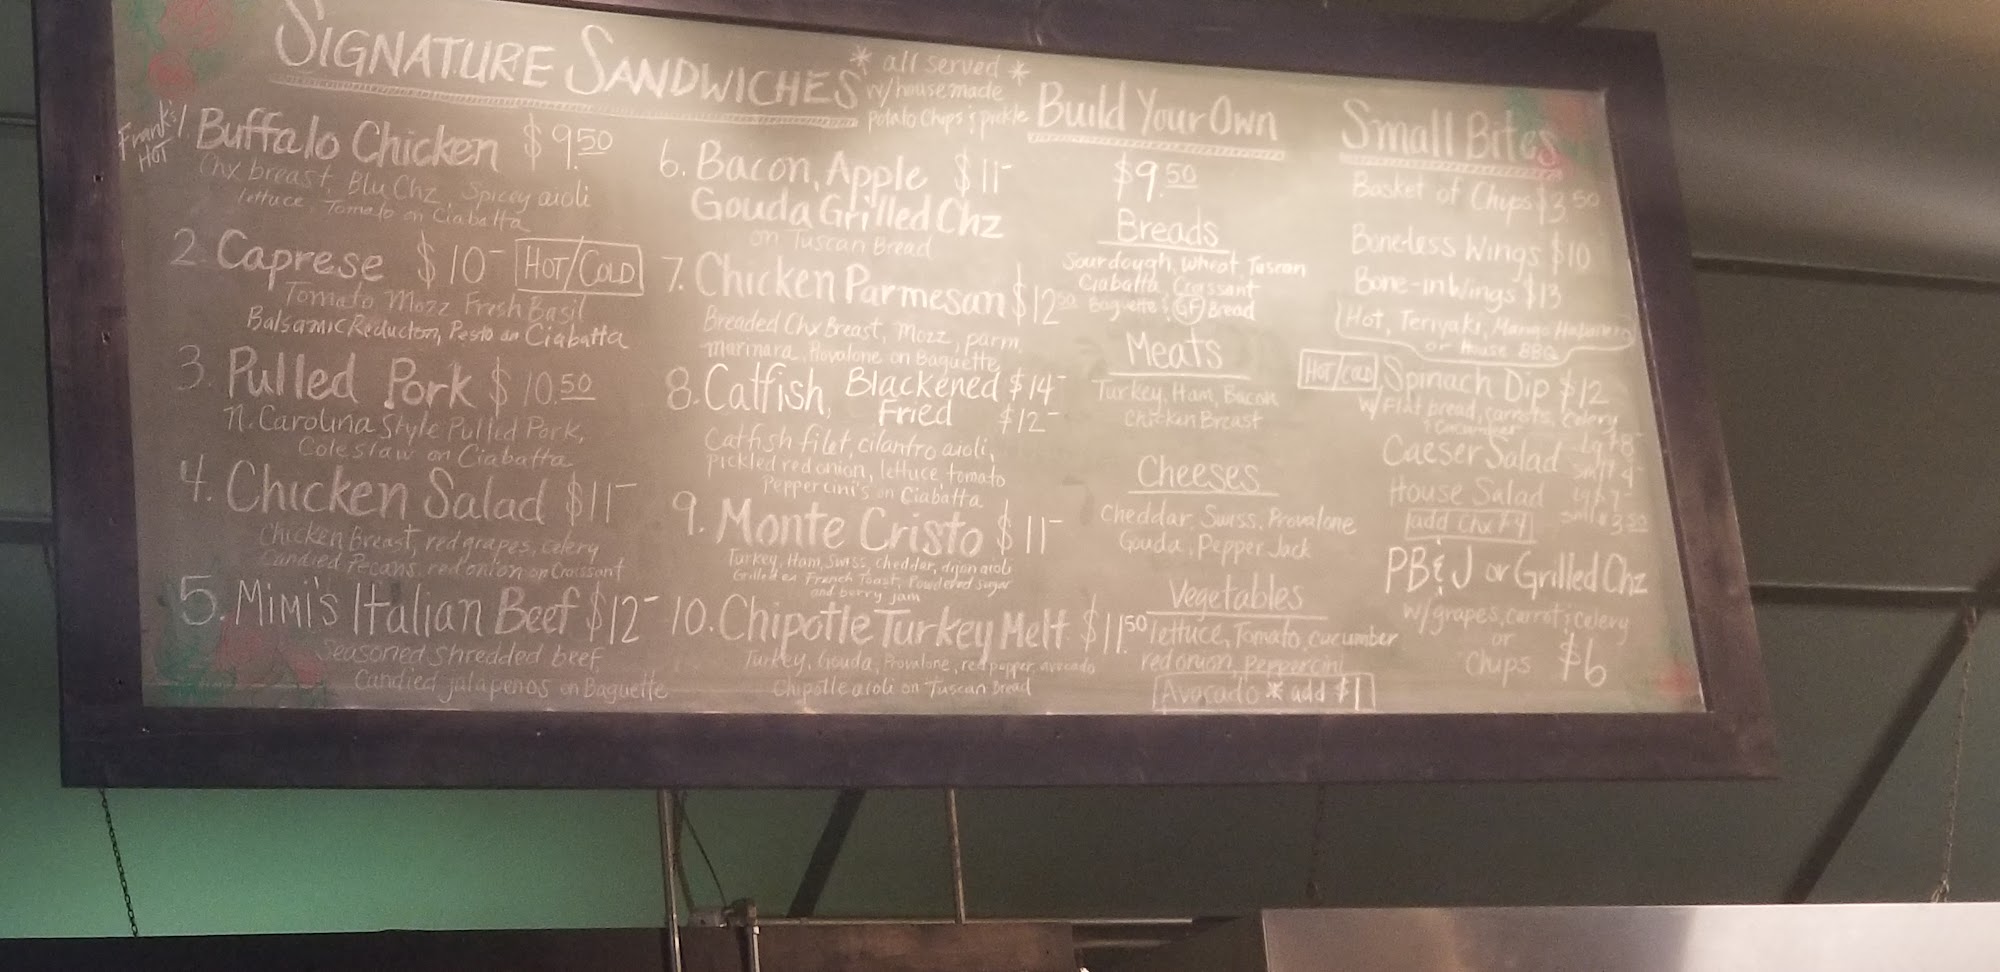 SIGNATURE SANDWICHES
* all served *
w/housemade
Potato Chips & pickle
Frank's
HOT
1. Buffalo Chicken $9.50
Chx breast, Blu Chz, Spicey aioli
lettuce, Tomato on Ciabatta
2. Caprese $10- HOT/COLD
Tomato Mozz Fresh Basil
Balsamic Reducton, Pesto on Ciabatta
3. Pulled Pork $10.50
N. Carolina Style Pulled Pork,
Coleslaw on Ciabatta
4. Chicken Salad $11-
Chicken Breast, red grapes, celery
Candied Pecans, red onion on Croissant
5. Mimi's Italian Beef $12-
Seasoned shredded beef
Candied jalapenos on Baguette
6. Bacon, Apple $11-
Gouda Grilled Chz
on Tuscan Bread
7. Chicken Parmesan $12.50
Breaded Chx Breast, Mozz, parm
marinara, Provalone on Baguette
8. Catfish, Blackened $14-
Fried $12-
Catfish filet, cilantro aioli,
pickled red onion, lettuce, tomato
Peppercini's on Ciabatta
9. Monte Cristo $11-
Turkey, Ham, Swiss, cheddar, dijon aioli
Grilled on French Toast, Powdered Sugar
and berry jam
10. Chipotle Turkey Melt $11.50
Turkey, Gouda, Provalone, red pepper, avocado
Chipotle aioli on Tuscan Bread
Build Your Own
$9.50
Breads
Sourdough, Wheat, Tuscan
Ciabatta, Crossant
Baguette & GF Bread
Meats
Turkey, Ham, Bacon
Chicken Breast
Cheeses
Cheddar, Swiss, Provalone
Gouda, Pepper Jack
Vegetables
lettuce, Tomato, cucumber
red onion, peppercini
Avocado * add $1
Small Bites
Basket of Chips $3.50
Boneless Wings $10
Bone-in Wings $13
Hot, Teriyaki, Mango Habanero
or House BBQ
HOT/COLD Spinach Dip $12
w/Flat bread, carrots, celery
& cucumber
Caeser Salad Lg $8-
Sml $4-
House Salad Lg $7-
Sml $3.50
add Chx $4
PB&J or Grilled Chz
w/grapes, carrot & celery
or
Chips $6